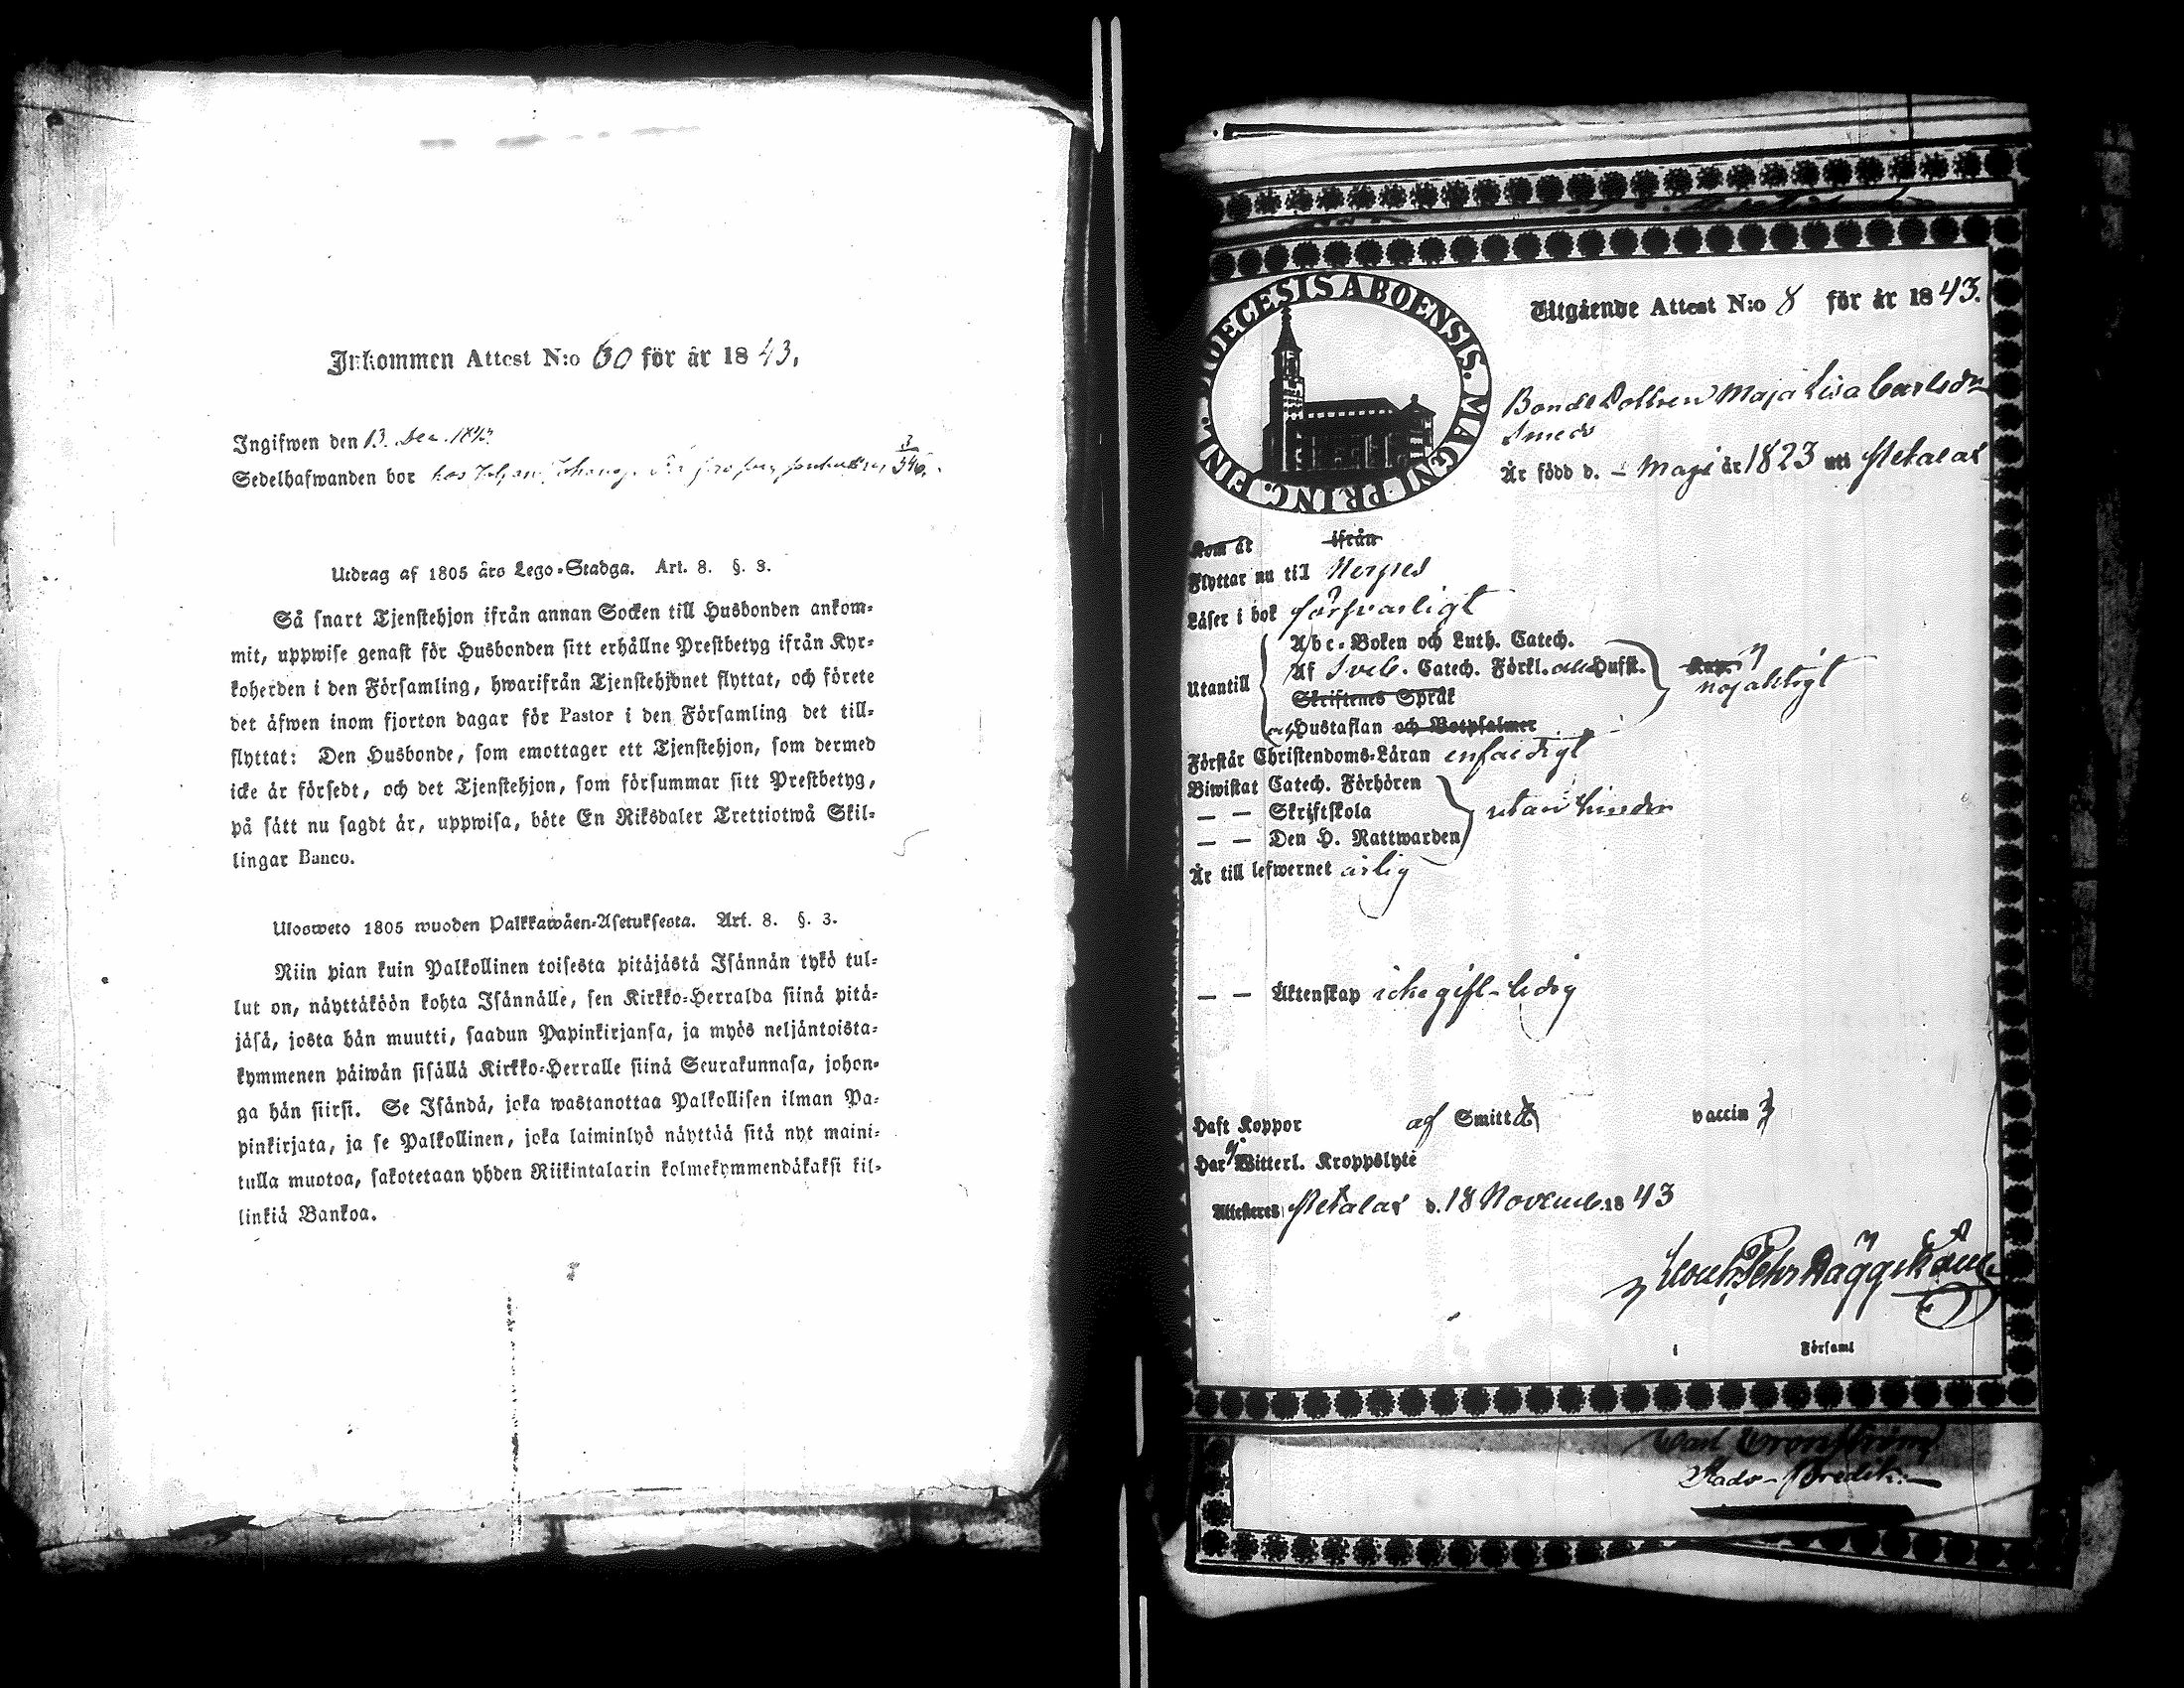 Inkommen Attest N:o 60 för år 1843.
Ingifwen den 13. Dec. 1843
Sedelhafwanden bor hos 3/546.
Utdrag af 1805 års Lego-Stadga. Art. 8. §. 3.
Så snart Tjenstehjon ifrån annan Socken till Husbonden ankom-
mit, uppwise genast för Husbonden sitt erhållne Prestbetyg ifrån Kyr-
koherden i den Församling, hwarifrån Tjenstehjonet flyttat, och förete
det äfwen inom fjorton dagar för Pastor i den Församling det till-
flyttat: Den Husbonde, som emottager ett Tjenstehjon, som dermed
icke är försedt, och det Tjenstehjon, som försummar sitt Prestbetyg,
på sätt nu sagdt är, uppwisa, böte En Riksdaler Trettiotwå Skil-
lingar Banco.
Ulosweto 1805 wuoden Palkkawäen-Asetuksesta. Art. 8. §. 3.
Niin pian kuin Palkollinen toisesta pitäjästä Isännän tykö tul-
lut on, näyttäköön kohta Isännälle, sen Kirkko-Herralda siinä pitä-
jäsä, josta hän muutti, saadun Papinkirjansa, ja myös neljäntoista-
kymmenen päiwän sisällä Kirkko-Herralle siinä Seurakunnasa, johon-
ga hän siirsi. Se Isändä, joka wastanottaa Palkollisen ilman Pa-
pinkirjata, ja se Palkollinen, joka laiminlyö näyttää sitä nyt maini-
tulla muotoa, sakotetaan yhden Riikintalarin kolmekymmendäkaksi kil-
linkiä Bankoa.
DIOECESIS ABOENSIS. MAGNI PRINC. FINL.
Utgående Attest N:o 8 för år 1843.
Bonde Dottren Maja Lisa Carlsdr
Smeds
Är född d. – Maji år 1823 uti Petalax
Kom år ifrån
Flyttar nu till Nerpes
Läser i bok försvarligt
Abc-Boken och Luth. Catech.
Utantill Af Sveb. Catech. Förkl. Hufst. nöjaktigt
Skriftenes Språk
och Hustaflan och Botpsalmer
Förstår Christendoms-Läran enfaldigt
Biwistat Catech. Förhören
— — Skriftskola utan hinder
— — Den H. Nattwarden
Är till lefwernet ärlig
— — Äktenskap icke gift - ledig
Haft Koppor af Smitta vaccin
Har ej Witterl. Kroppslyte
Attesteras Petalax d. 18 Novemb. 1843
Pehr Häggström
i Församl
Carl Cronström
Stads-Predik.